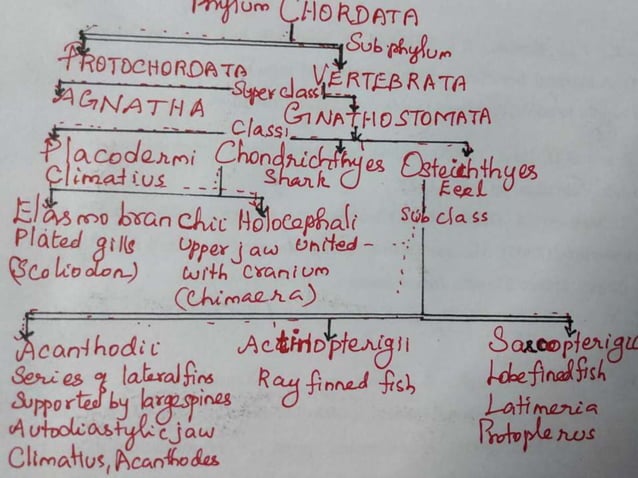 Phylum CHORDATA
Subphylum
PROTOCHORDATA VERTEBRATA
Super class
AGNATHA GNATHOSTOMATA
Class
Placodermi Chondrichthyes Osteichthyes
Climatius Shark Eeel
Sub class
Elasmobranchii Holocephali
Plated gills upper jaw united -
(Scoliodon) with cranium
(Chimaera)
Acanthodii Actinopterigii Sarcopterigii
Series of lateral fins Ray finned fish Lobe fined fish
Supported by large spines Latimeria
Autodiastylic jaw Protopterus
Climatius, Acanthodes